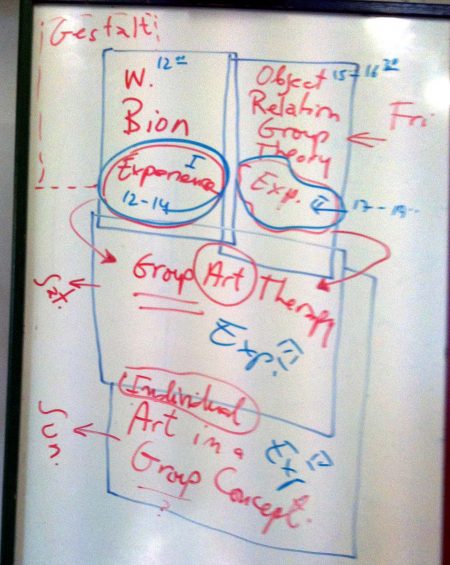 ¡Gestalt!
12⁰⁰
W.
Bion
Experience I
12-14
Object 15-16
Relation
Group
Theory
Fri
Exp. II
17-19
Group Art Therapy
Exp.
Individual
Art in a
Group Concept.
Exp
?